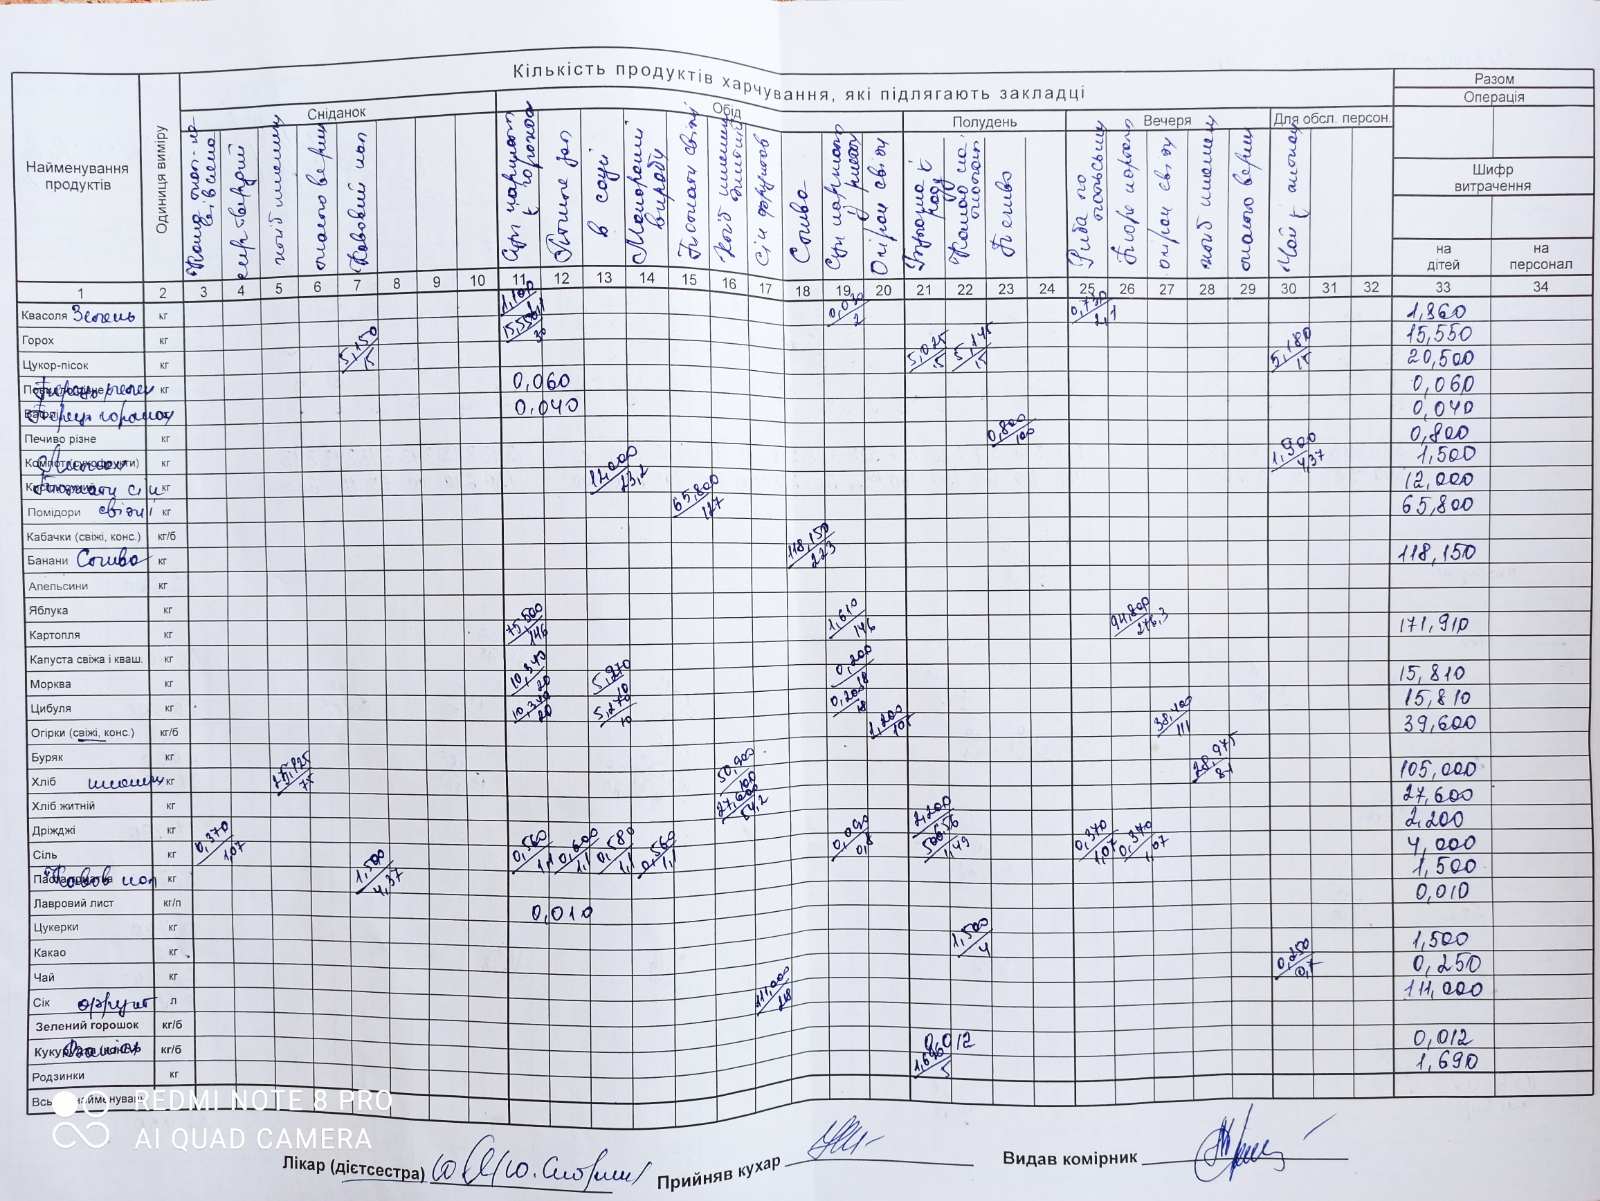 Кількість продуктів харчування, які підлягають закладці
Разом
Операція
Сніданок
Обід
Полудень
Вечеря
Для обсл. персон.
Найменування продуктів
Одиниця виміру
Шифр витрачення
на дітей
на персонал
сир твердий
хліб пшенич
масло верш
Кавовий нап
в соусі
Макаронні вироби
Томати свіжі
Сік фруктов
Слива
Огірки свіжі
Печиво
Риба по польськи
Пюре картоп
огірки свіжі
хліб пшенич
масло верш
Чай з лимон
1 2 3 4 5 6 7 8 9 10 11 12 13 14 15 16 17 18 19 20 21 22 23 24 25 26 27 28 29 30 31 32 33 34
Квасоля Зелень кг 1,100 0,030/2 0,730/2,1 1,860
Горох кг 15,550/30 15,550
Цукор-пісок кг 5,150/15 5,025/15 5,145/15 5,180/15 20,500
Перець мелен кг 0,060 0,060
Перець горошок кг 0,040 0,040
Печиво різне кг 0,800/100 0,800
Лимон кг 1,500/4,37 1,500
Томати с кг 12,000/23,2 12,000
Помідори свіжі кг 65,800/127 65,800
Кабачки (свіжі, конс.) кг/б
Банани Слива кг 118,150/223 118,150
Апельсини кг
Яблука кг
Картопля кг 75,500/146 1,610/146 94,800/276,3 171,910
Капуста свіжа і кваш. кг
Морква кг 10,340/20 5,270/10 0,200/18 15,810
Цибуля кг 10,340/20 5,270/10 0,200/18 15,810
Огірки (свіжі, конс.) кг/б 1,200/105 38,400/111 39,600
Буряк кг
Хліб пшенич кг 25,825/75 50,200/100 28,975/84 105,000
Хліб житній кг 27,600/54,2 27,600
Дріжджі кг 2,200 2,200
Сіль кг 0,370/1,07 0,560/1,1 0,600/1,1 0,580/1,1 0,560/1,1 0,090/0,8 0,370/1,07 0,370/1,07 4,000
Кавов нап кг 1,500/4,37 1,500
Лавровий лист кг/п 0,010 0,010
Цукерки кг
Какао кг 1,500/4 1,500
Чай кг 0,250/0,7 0,250
Сік фрукт л 111,000/218 111,000
Зелений горошок кг/б
Ванілін кг/б 0,012 0,012
Родзинки кг 1,690/5 1,690
Всього найменувань
REDMI NOTE 8 PRO
AI QUAD CAMERA
Лікар (дієтсестра)
Прийняв кухар
Видав комірник